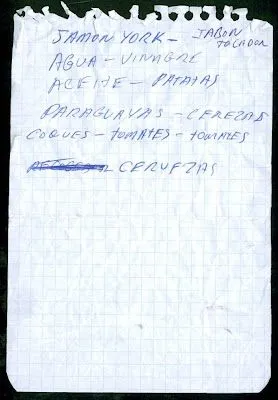 JAMON YORK - JABON TOCADOR
AGUA - VINAGRE
ACEITE - PATATAS
PARAGUAYAS - CEREZAS
COQUES - TOMATES - TOMATES
CERVEZAS